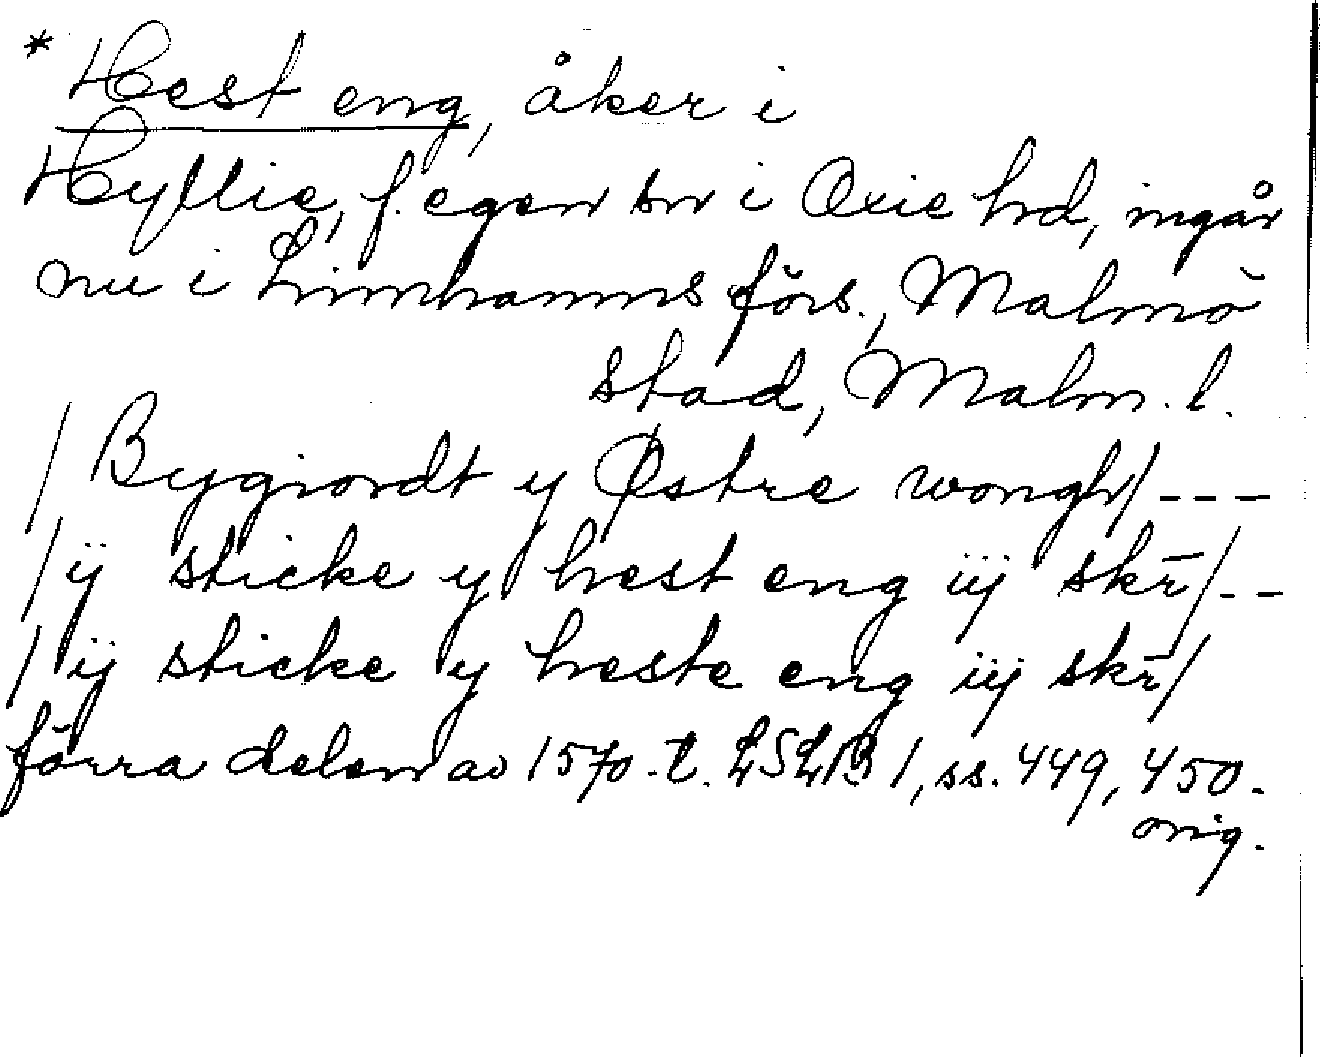 * Hest eng, åker i
Hyllie, f. egen sn i Oxie hd, ingår
nu i Limhamns förs., Malmö
stad, Malm. l.
/ Bygiordt y Østre wongh/ ---
/ ij sticke y hest eng iij skr̄/ --
/ ij sticke y heste eng iij skr̄/
förra delen av 1570-t. LSLB 1, ss. 449, 450.
orig.